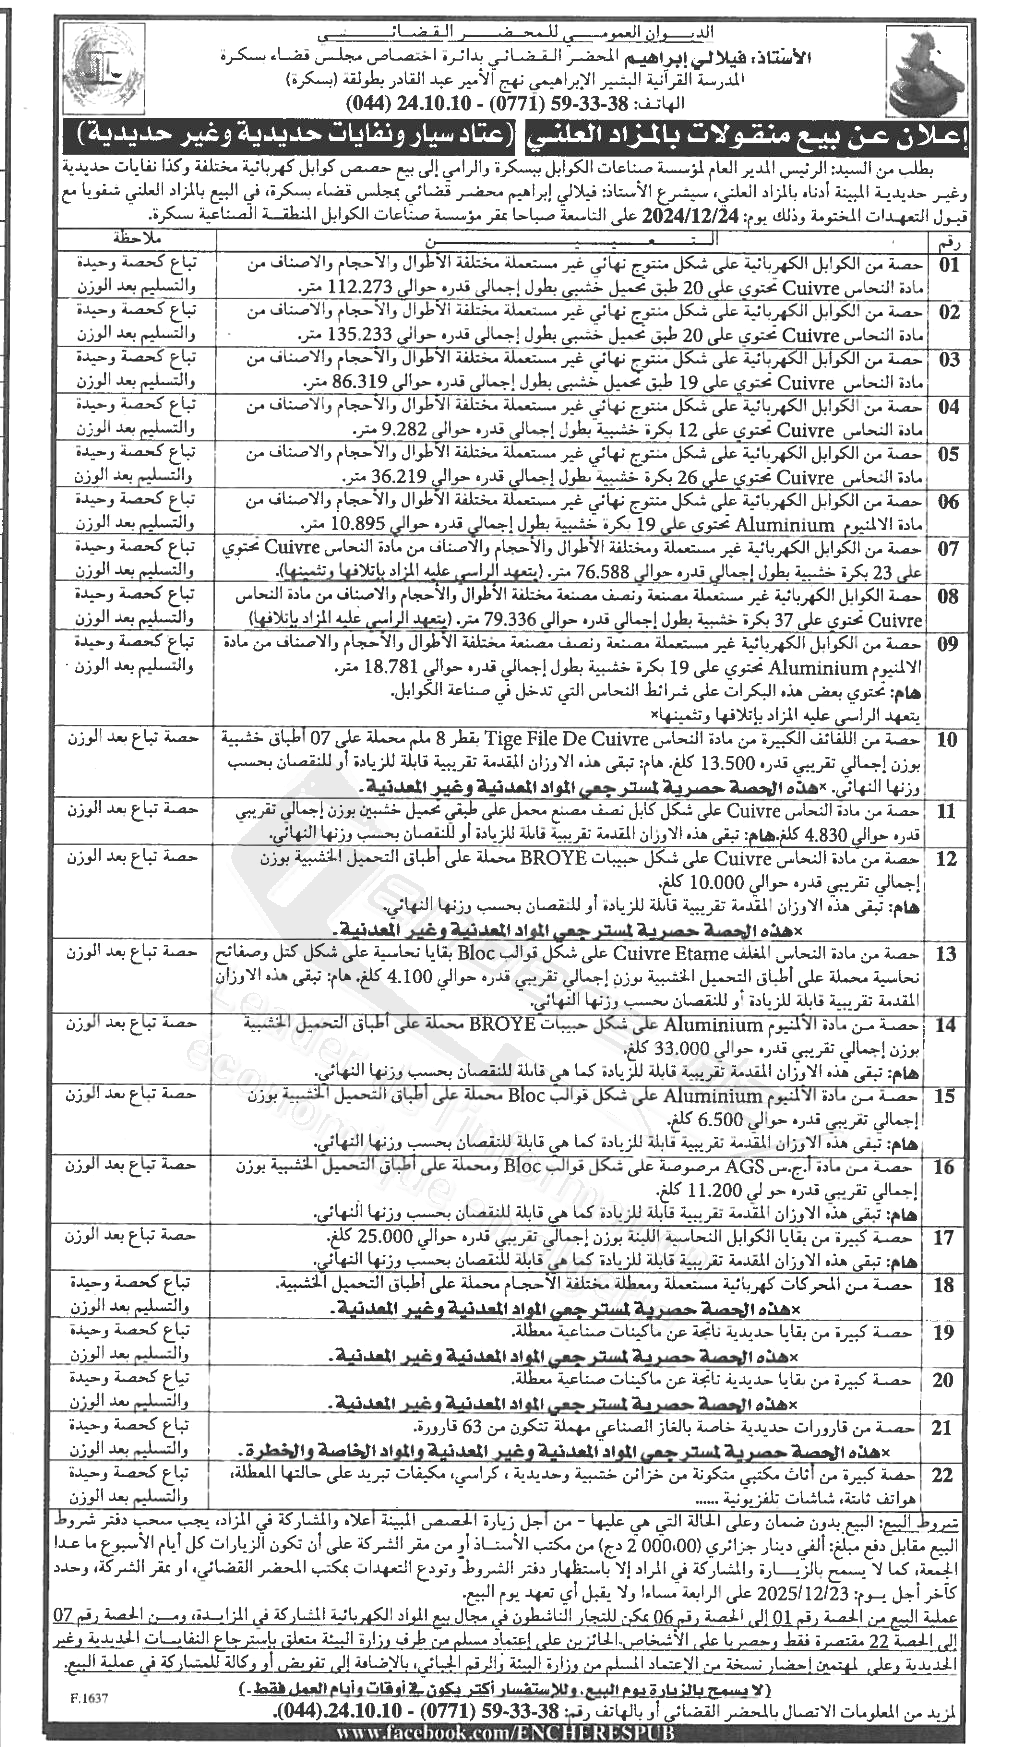 الديوان العمومي للمحضر القضائي
الأستاذ: فيلالي إبراهيم المحضر القضائي بدائرة اختصاص مجلس قضاء بسكرة
المدرسة القرآنية البشير الإبراهيمي نهج الأمير عبد القادر بطولقة (بسكرة)
الهاتف: 38-33-59 (0771) - 24.10.10 (044)
إعلان عن بيع منقولات بالمزاد العلني (عتاد سيار ونفايات حديدية وغير حديدية)
بطلب من السيد: الرئيس المدير العام لمؤسسة صناعات الكوابل ببسكرة والرامي إلى بيع حصص كوابل كهربائية مختلفة وكذا نفايات حديدية
وغير حديدية المبينة أدناه بالمزاد العلني، سيشرع الأستاذ: فيلالي إبراهيم محضر قضائي بمجلس قضاء بسكرة، في البيع بالمزاد العلني شفويا مع
قبول التعهدات المختومة وذلك يوم: 2024/12/24 على التاسعة صباحا بمقر مؤسسة صناعات الكوابل المنطقة الصناعية بسكرة.
رقم التعييـــن ملاحظة
01 حصة من الكوابل الكهربائية على شكل منتوج نهائي غير مستعملة مختلفة الأطوال والأحجام والاصناف من تباع كحصة وحيدة
مادة النحاس Cuivre تحتوي على 20 طبق تحميل خشبي بطول إجمالي قدره حوالي 112.273 متر. والتسليم بعد الوزن
02 حصة من الكوابل الكهربائية على شكل منتوج نهائي غير مستعملة مختلفة الأطوال والأحجام والاصناف من تباع كحصة وحيدة
مادة النحاس Cuivre تحتوي على 20 طبق تحميل خشبي بطول إجمالي قدره حوالي 135.233 متر. والتسليم بعد الوزن
03 حصة من الكوابل الكهربائية على شكل منتوج نهائي غير مستعملة مختلفة الأطوال والأحجام والاصناف من تباع كحصة وحيدة
مادة النحاس Cuivre تحتوي على 19 طبق تحميل خشبي بطول إجمالي قدره حوالي 86.319 متر. والتسليم بعد الوزن
04 حصة من الكوابل الكهربائية على شكل منتوج نهائي غير مستعملة مختلفة الأطوال والأحجام والاصناف من تباع كحصة وحيدة
مادة النحاس Cuivre تحتوي على 12 بكرة خشبية بطول إجمالي قدره حوالي 9.282 متر. والتسليم بعد الوزن
05 حصة من الكوابل الكهربائية على شكل منتوج نهائي غير مستعملة مختلفة الأطوال والأحجام والاصناف من تباع كحصة وحيدة
مادة النحاس Cuivre تحتوي على 26 بكرة خشبية بطول إجمالي قدره حوالي 36.219 متر. والتسليم بعد الوزن
06 حصة من الكوابل الكهربائية على شكل منتوج نهائي غير مستعملة مختلفة الأطوال والأحجام والاصناف من تباع كحصة وحيدة
مادة الالمنيوم Aluminium تحتوي على 19 بكرة خشبية بطول إجمالي قدره حوالي 10.895 متر. والتسليم بعد الوزن
07 حصة من الكوابل الكهربائية غير مستعملة ومختلفة الأطوال والأحجام والاصناف من مادة النحاس Cuivre تحتوي تباع كحصة وحيدة
على 23 بكرة خشبية بطول إجمالي قدره حوالي 76.588 متر. (يتعهد الراسي عليه المزاد بإتلافها وتثمينها). والتسليم بعد الوزن
08 حصة الكوابل الكهربائية غير مستعملة مصنعة ونصف مصنعة مختلفة الأطوال والأحجام والاصناف من مادة النحاس تباع كحصة وحيدة
Cuivre تحتوي على 37 بكرة خشبية بطول إجمالي قدره حوالي 79.336 متر. (يتعهد الراسي عليه المزاد بإتلافها) والتسليم بعد الوزن
09 حصة من الكوابل الكهربائية غير مستعملة مصنعة ونصف مصنعة مختلفة الأطوال والأحجام والاصناف من مادة تباع كحصة وحيدة
الالمنيوم Aluminium تحتوي على 19 بكرة خشبية بطول إجمالي قدره حوالي 18.781 متر. والتسليم بعد الوزن
هام: تحتوي بعض هذه البكرات على شرائط النحاس التي تدخل في صناعة الكوابل.
يتعهد الراسي عليه المزاد بإتلافها وتثمينها×
10 حصة من اللفائف الكبيرة من مادة النحاس Tige File De Cuivre بقطر 8 ملم محملة على 07 أطباق خشبية حصة تباع بعد الوزن
بوزن إجمالي تقريبي قدره 13.500 كلغ. هام: تبقى هذه الاوزان المقدمة تقريبية قابلة للزيادة أو للنقصان بحسب
وزنها النهائي. ×هذه الحصة حصرية لمسترجعي المواد المعدنية وغير المعدنية.
11 حصة من مادة النحاس Cuivre على شكل كابل نصف مصنع محمل على طبقي تحميل خشبين بوزن إجمالي تقريبي حصة تباع بعد الوزن
قدره حوالي 4.830 كلغ.هام: تبقى هذه الاوزان المقدمة تقريبية قابلة للزيادة أو للنقصان بحسب وزنها النهائي.
12 حصة من مادة النحاس Cuivre على شكل حبيبات BROYE محملة على أطباق التحميل الخشبية بوزن حصة تباع بعد الوزن
إجمالي تقريبي قدره حوالي 10.000 كلغ.
هام: تبقى هذه الاوزان المقدمة تقريبية قابلة للزيادة أو للنقصان بحسب وزنها النهائي.
×هذه الحصة حصرية لمسترجعي المواد المعدنية وغير المعدنية.
13 حصة من مادة النحاس المغلف Cuivre Etame على شكل قوالب Bloc بقايا نحاسية على شكل كتل وصفائح حصة تباع بعد الوزن
نحاسية محملة على أطباق التحميل الخشبية بوزن إجمالي تقريبي قدره حوالي 4.100 كلغ. هام: تبقى هذه الاوزان
المقدمة تقريبية قابلة للزيادة أو للنقصان بحسب وزنها النهائي.
14 حصة من مادة الألمنيوم Aluminium على شكل حبيبات BROYE محملة على أطباق التحميل الخشبية حصة تباع بعد الوزن
بوزن إجمالي تقريبي قدره حوالي 33.000 كلغ.
هام: تبقى هذه الاوزان المقدمة تقريبية قابلة للزيادة كما هي قابلة للنقصان بحسب وزنها النهائي.
15 حصة من مادة الألمنيوم Aluminium على شكل قوالب Bloc محملة على أطباق التحميل الخشبية بوزن حصة تباع بعد الوزن
إجمالي تقريبي قدره حوالي 6.500 كلغ.
هام: تبقى هذه الاوزان المقدمة تقريبية قابلة للزيادة كما هي قابلة للنقصان بحسب وزنها النهائي.
16 حصة من مادة أ.ج.س AGS مرصوصة على شكل قوالب Bloc ومحملة على أطباق التحميل الخشبية بوزن حصة تباع بعد الوزن
إجمالي تقريبي قدره حوالي 11.200 كلغ.
هام: تبقى هذه الاوزان المقدمة تقريبية قابلة للزيادة كما هي قابلة للنقصان بحسب وزنها النهائي.
17 حصة كبيرة من بقايا الكوابل النحاسية اللينة بوزن إجمالي تقريبي قدره حوالي 25.000 كلغ. حصة تباع بعد الوزن
هام: تبقى هذه الاوزان المقدمة تقريبية قابلة للزيادة كما هي قابلة للنقصان بحسب وزنها النهائي.
18 حصة من المحركات كهربائية مستعملة ومعطلة مختلفة الأحجام محملة على أطباق التحميل الخشبية. تباع كحصة وحيدة
×هذه الحصة حصرية لمسترجعي المواد المعدنية وغير المعدنية. والتسليم بعد الوزن
19 حصة كبيرة من بقايا حديدية ناتجة عن ماكينات صناعية معطلة. تباع كحصة وحيدة
×هذه الحصة حصرية لمسترجعي المواد المعدنية وغير المعدنية. والتسليم بعد الوزن
20 حصة كبيرة من بقايا حديدية ناتجة عن ماكينات صناعية معطلة. تباع كحصة وحيدة
×هذه الحصة حصرية لمسترجعي المواد المعدنية وغير المعدنية. والتسليم بعد الوزن
21 حصة من قارورات حديدية خاصة بالغاز الصناعي مهملة تتكون من 63 قارورة. تباع كحصة وحيدة
×هذه الحصة حصرية لمسترجعي المواد المعدنية وغير المعدنية والمواد الخاصة والخطرة. والتسليم بعد الوزن
22 حصة كبيرة من أثاث مكتبي متكونة من خزائن خشبية وحديدية ، كراسي، مكيفات تبريد على حالتها المعطلة، تباع كحصة وحيدة
هواتف ثابتة، شاشات تلفزيونية ...... والتسليم بعد الوزن
شروط البيع: البيع بدون ضمان وعلى الحالة التي هي عليها - من أجل زيارة الحصص المبينة أعلاه والمشاركة في المزاد، يجب سحب دفتر شروط
البيع مقابل دفع مبلغ: ألفي دينار جزائري (2 000،00 دج) من مكتب الأستاذ أو من مقر الشركة على أن تكون الزيارات كل أيام الأسبوع ما عدا
الجمعة، كما لا يسمح بالزيارة والمشاركة في المزاد إلا باستظهار دفتر الشروط وتودع التعهدات بمكتب المحضر القضائي، أو بمقر الشركة، وحدد
كآخر أجل يوم: 2025/12/23 على الرابعة مساءا ولا يقبل أي تعهد يوم البيع.
عملية البيع من الحصة رقم 01 إلى الحصة رقم 06 يمكن للتجار الناشطون في مجال بيع المواد الكهربائية المشاركة في المزايدة، ومن الحصة رقم 07
إلى الحصة 22 مقتصرة فقط وحصريا على الأشخاص، الحائزين على إعتماد مسلم من طرف وزارة البيئة متعلق بإسترجاع النفايات الحديدية وغير
الحديدية وعلى المهتمين إحضار نسخة من الاعتماد المسلم من وزارة البيئة والرقم الجبائي، بالإضافة إلى تفويض أو وكالة للمشاركة في عملية البيع.
(لا يسمح بالزيارة يوم البيع، وللإستفسار أكثر يكون في أوقات وأيام العمل فقط.)
لمزيد من المعلومات الاتصال بالمحضر القضائي أو بالهاتف رقم: 38-33-59 (0771) - 24.10.10.(044).
F.1637
www.facebook.com/ENCHERESPUB